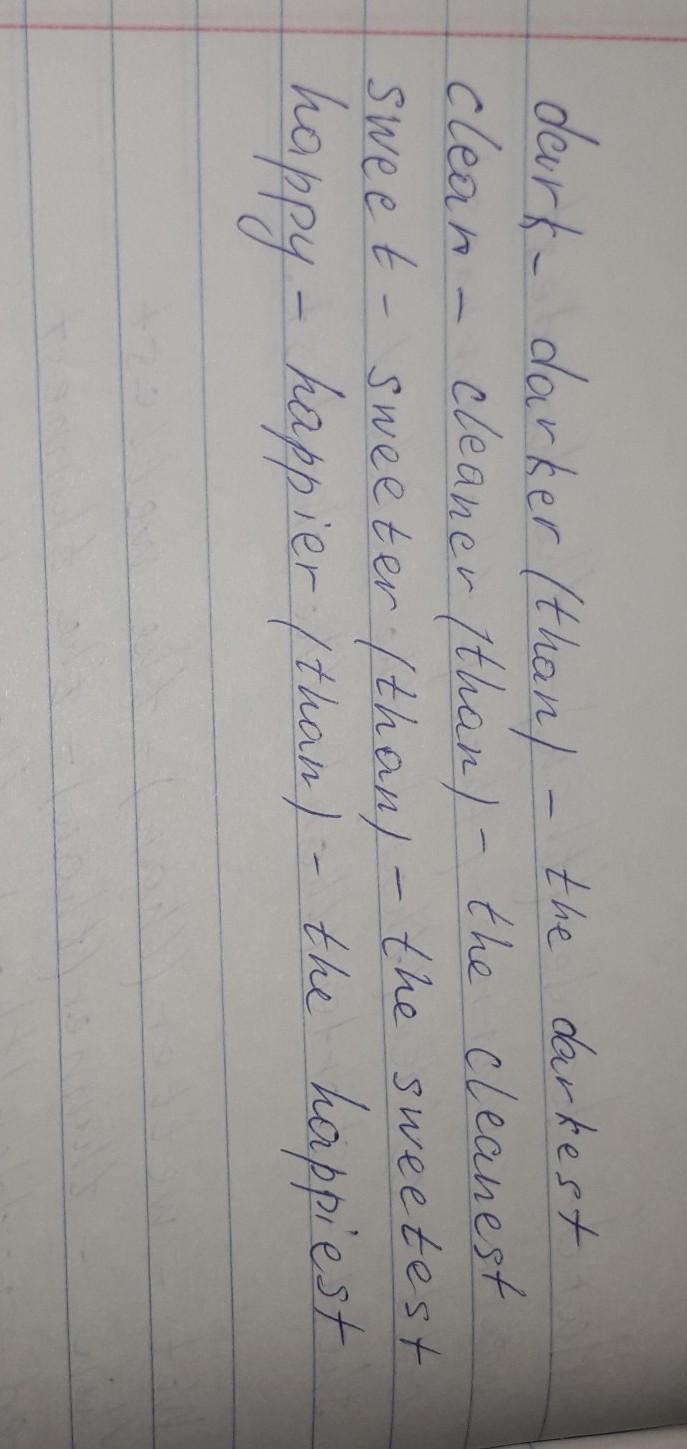 dark - darker (than) - the darkest
clean - cleaner (than) - the cleanest
sweet - sweeter (than) - the sweetest
happy - happier (than) - the happiest